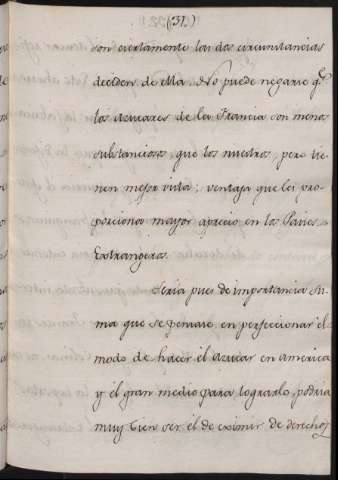 (31.)
son ciertamente las dos circunstancias
deciden de ella. No puede negarse q.e
los Azucares de la Francia son menos
substanciosos, que los nuestros, pero tie-
nen mejor vista; ventaja que les pro-
porciona mayor aprecio en los Paises
Extrangeros.
Sería pues de importancia su-
ma que se pensase en perfeccionar el
modo de hacer el Azucar en America
y el gran medio para lograrlo, podria
muy bien ser el de eximir de derechos